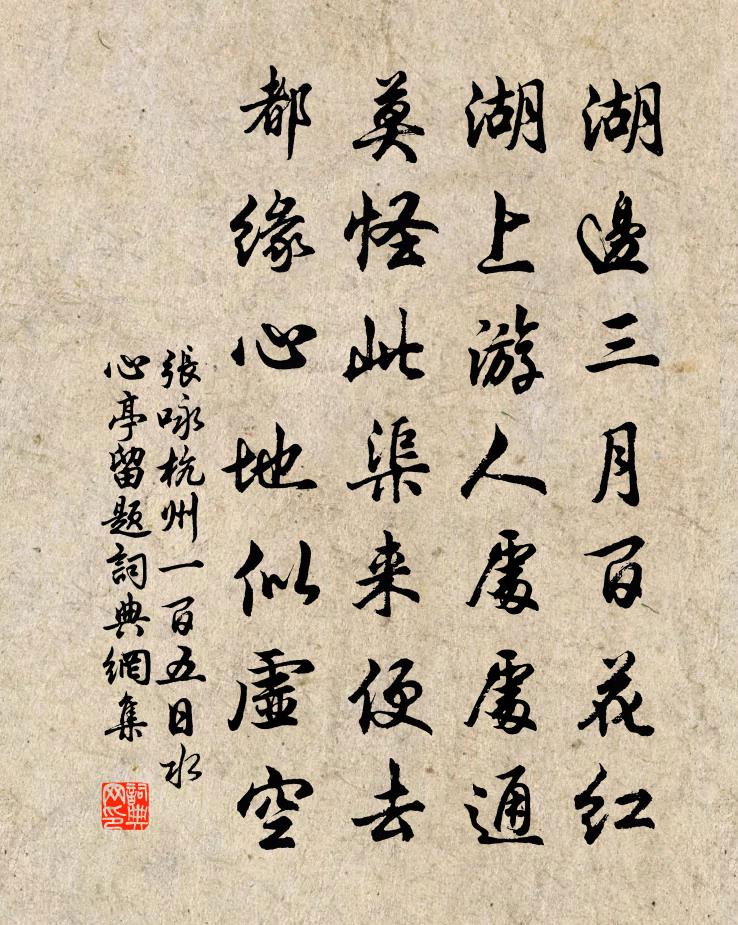 湖邊三月百花紅
湖上游人處處通
莫怪此渠来便去
都緣心地似虛空
張咏杭州一百五日水
心亭留題詞典網集
詞典
网印